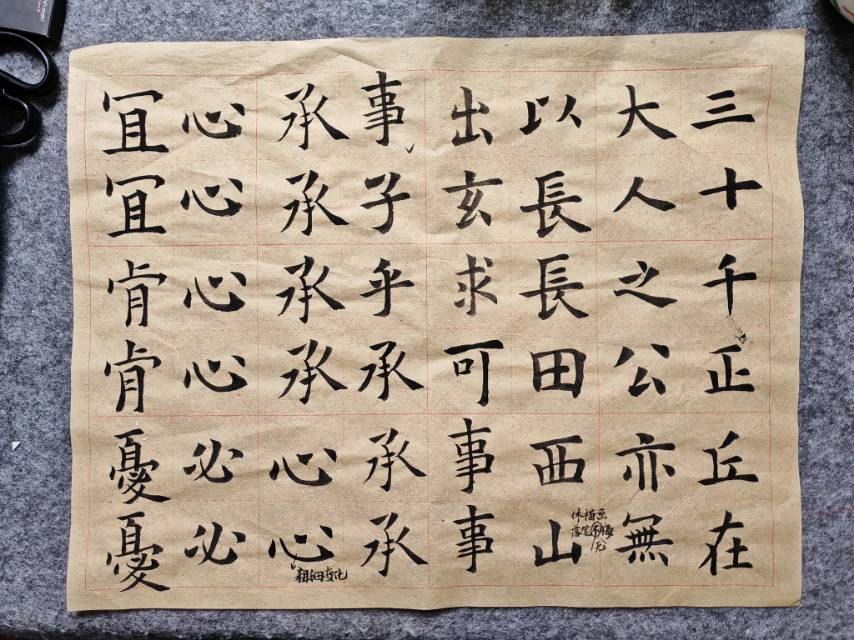 三十千正丘在
大人之公亦無
以長長田西山
出玄求可事事
事子乎承承承
承承承承心心
心心心心必必
宜宜肯肯憂憂
休描画
落笔不悔
粗细变化